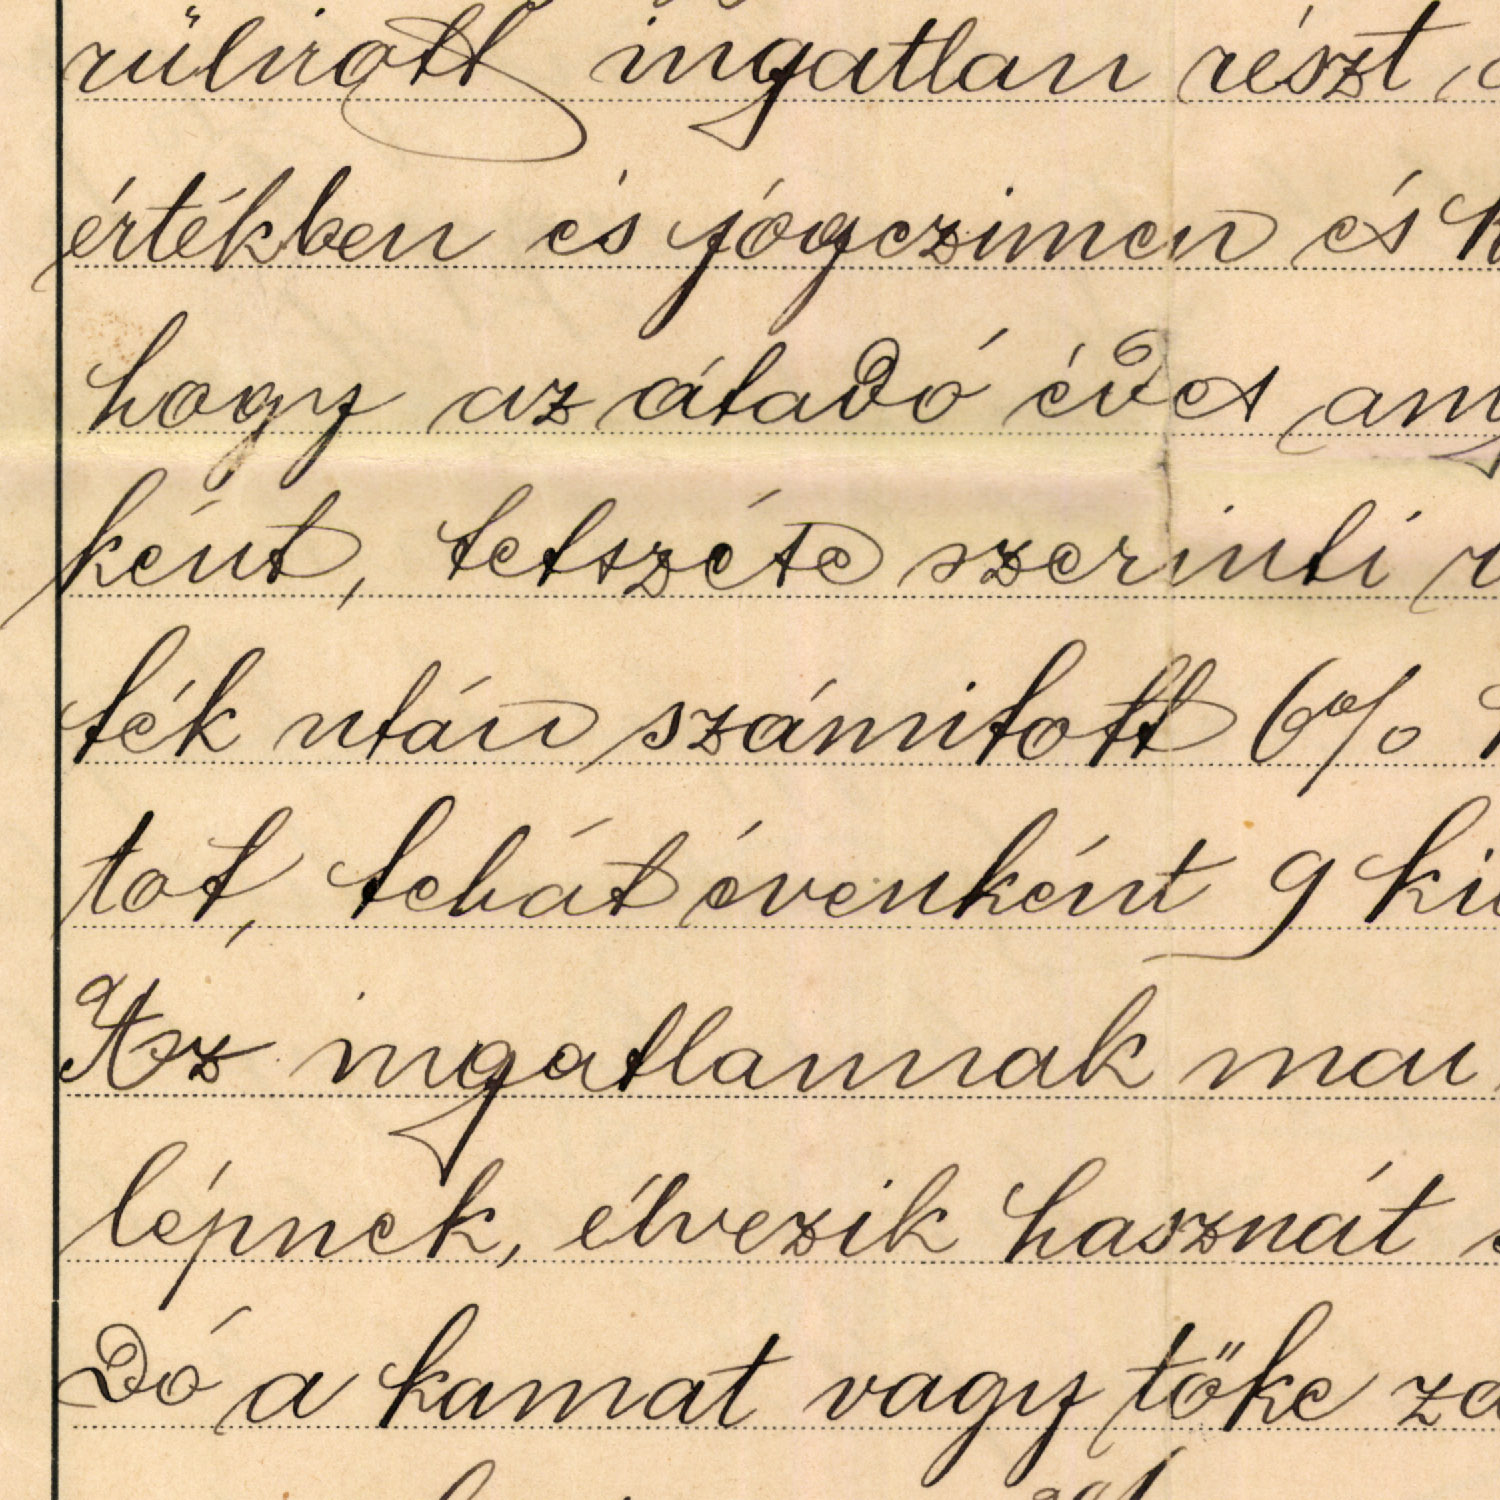 rülirott ingatlan részt
értékben és jógczimen és
hogy az átadó évet
ként, tetszéte szerinti
ték után számitott 6%
tot, tehát évenként 9
Az ingatlannak mai
lépnek, élvezik hasznát
dó a kamat vagy tőke